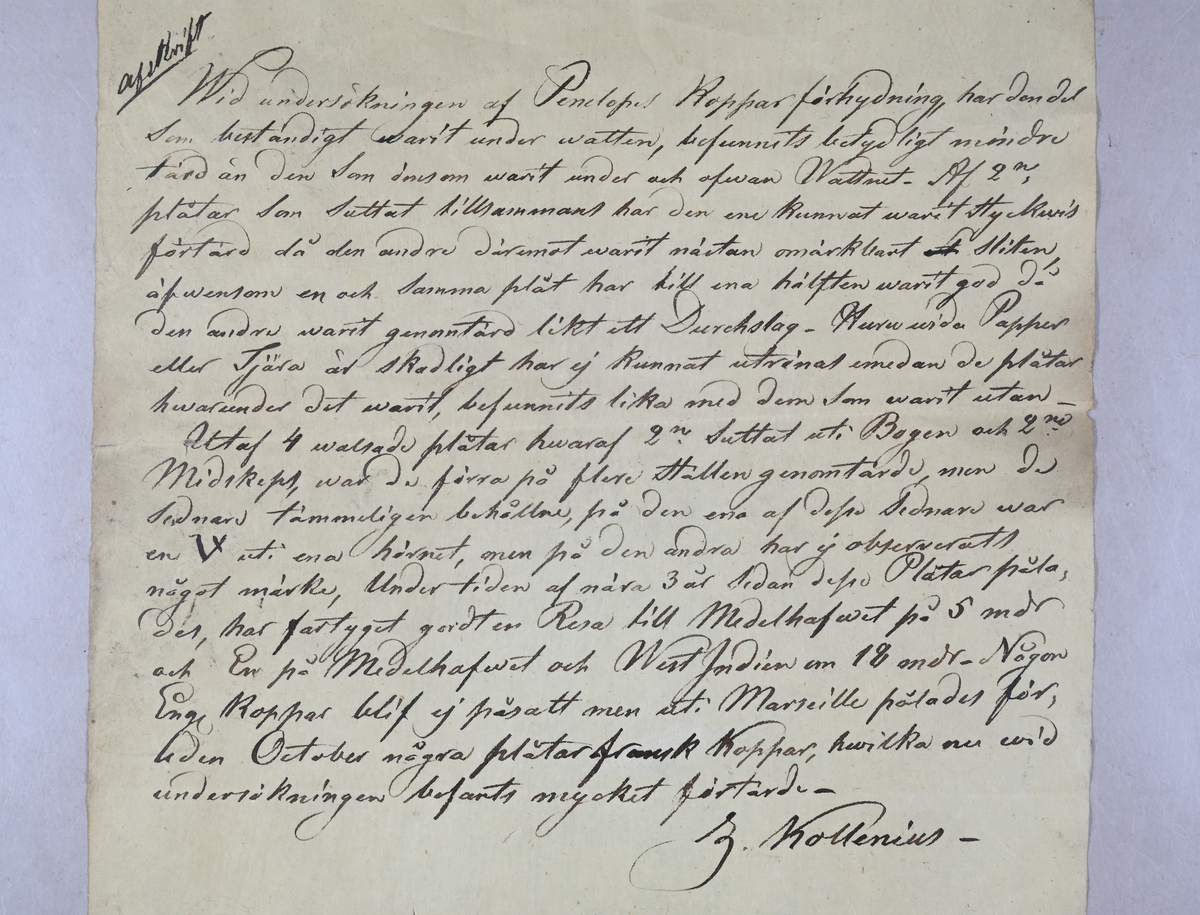 afskrift
Wid undersökningen af Penelopes Koppar förhydning, har den del
som beständigt warit under watten, befunnits betydligt mindre
tärd än den som ömsom warit under och ofwan Wattnet – Af 2ne
plåtar som suttat tillsammans har den ene kunnat warit styckwis
förtärd då den andre däremot warit nästan omärkbart sliten,
äfwensom en och samma plåt har till ena hälften warit god då
den andre warit genomtärd likt ett Durchslag – Huruwida Papper
eller Tjära är skadligt har ej kunnat utrönas emedan de plåtar
hwarunder det warit, befunnits lika med dem som warit utan –
Utaf 4 walsade plåtar hwaraf 2ne suttat uti Bogen och 2ne
Midskeps, war de förra på flere ställen genomtärde, men de
sednare tämmeligen behållne, på den ena af desse sednare war
en V uti ena hörnet, men på den andra har ej observerats
något märke, Under tiden af nära 3 år sedan desse Plåtar påla,
des, har fartyget gordt en Resa till Medelhafwet på 5 mdr
och En på Medelhafwet och West Indien om 18 mdr – Någon
Engs Koppar blif ej påsatt men uti Marseille pålades för,
leden October några plåtar fransk Koppar, hwilka nu wid
undersökningen befants mycket förtärde –
Z. Kollenius –